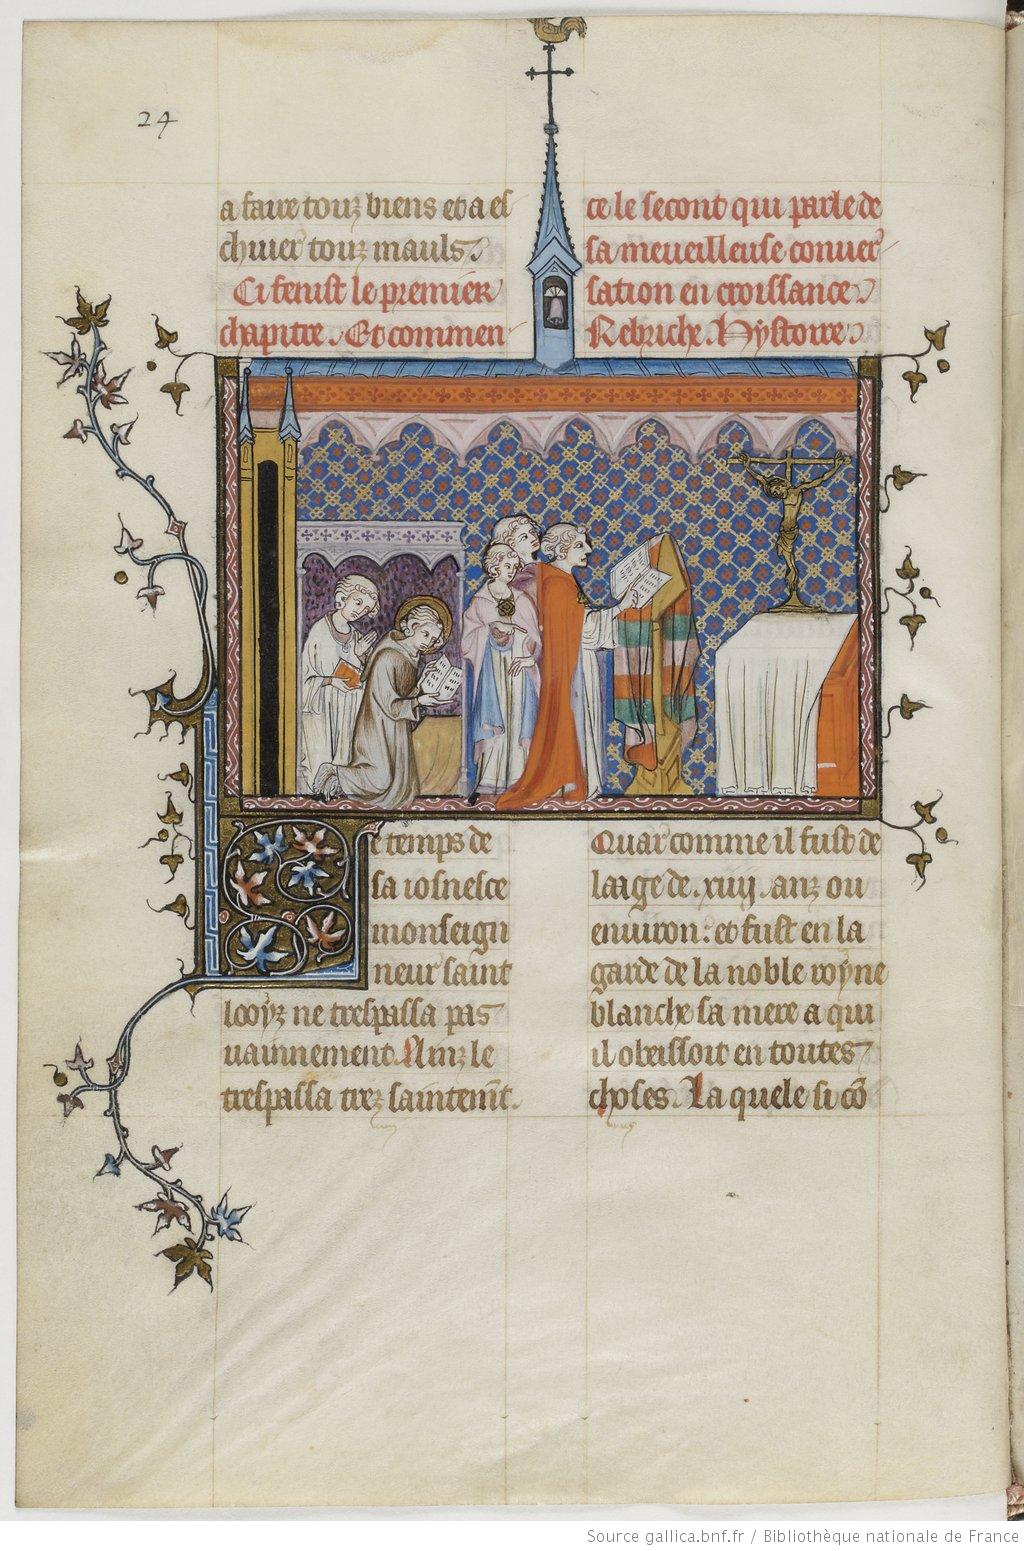 24
a faire touz biens et a es
chiuer touz mauls.
Ci fenist le premier
chapitre. Et commen
ce le secont qui parle de
sa merueilleuse conuer
sation en croissance.
Rebriche. Hystoire.
e temps de
sa ionesce
monseign
neur saint
looys ne trespassa pas
uainnement. Ainz le
trespassa trez saintemt.
Quar comme il fust de
laige de .xiiij. anz ou
enuiron: et fust en la
garde de la noble royne
blanche sa mere a qui
il obeissoit en toutes
choses. La quele si co
Source gallica.bnf.fr / Bibliothèque nationale de France